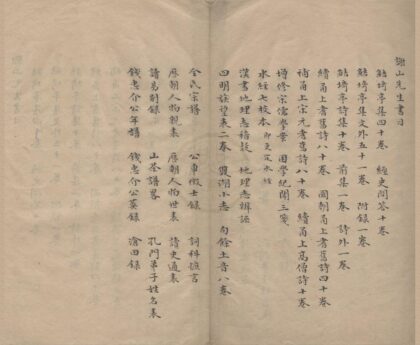 謝山先生書目
鮚埼亭集四十卷 經史問答十卷
鮚埼亭集文外五十一卷 附錄一卷
鮚埼亭詩集十卷 前集一卷 詩外一卷
續甬上耆舊詩八十卷 國朝甬上耆舊詩四十卷
補甬上宋元耆舊詩八十卷 續甬上高僧詩十卷
增修宋儒學案 困學紀聞三箋
水經七校本
漢書地理志稽疑 地理志辨證
四明族望表二卷 雙湖小志 句餘土音八卷
全氏宗譜 公車徵士錄 詞科摭言
歷朝人物親表 歷朝人物世表 讀史通表
讀易別錄 山茶譜畧 孔門弟子姓名表
錢忠介公年譜 錢忠介公葬錄 滄田錄